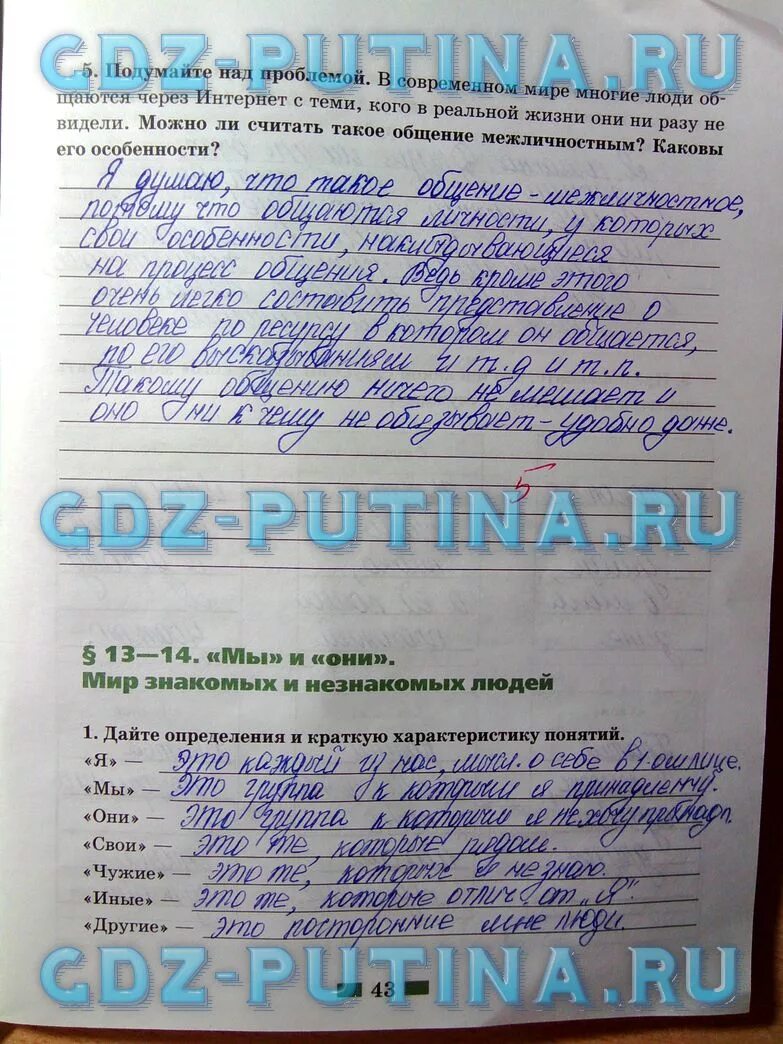 GDZ-PUTINA.RU
5. Подумайте над проблемой. В современном мире многие люди об-
щаются через Интернет с теми, кого в реальной жизни они ни разу не
видели. Можно ли считать такое общение межличностным? Каковы
его особенности?
Я думаю, что такое общение - межличностное,
потому что общаются личности, у которых
свои особенности, накладывающиеся
на процесс общения. Ведь кроме этого
очень легко составить представление о
человеке по ресурсу в котором он общается,
по его высказываниям и т.д и т.п.
Такому общению ничего не мешает и
оно ни к чему не обязывает - удобно даже.
5
GDZ-PUTINA.RU
§ 13—14. «Мы» и «они».
Мир знакомых и незнакомых людей
1. Дайте определения и краткую характеристику понятий.
«Я» — это каждый из нас, мысл. о себе в 1-ом лице.
«Мы» — это группа к которым я принадлежу.
«Они» — это группа к которым я не хочу принадл.
«Свои» — это те, которые рядом.
«Чужие» — это те, которых я не знаю.
«Иные» — это те, которые отлич. от „Я".
«Другие» — это посторонние мне люди.
GDZ-PUTINA.RU
43